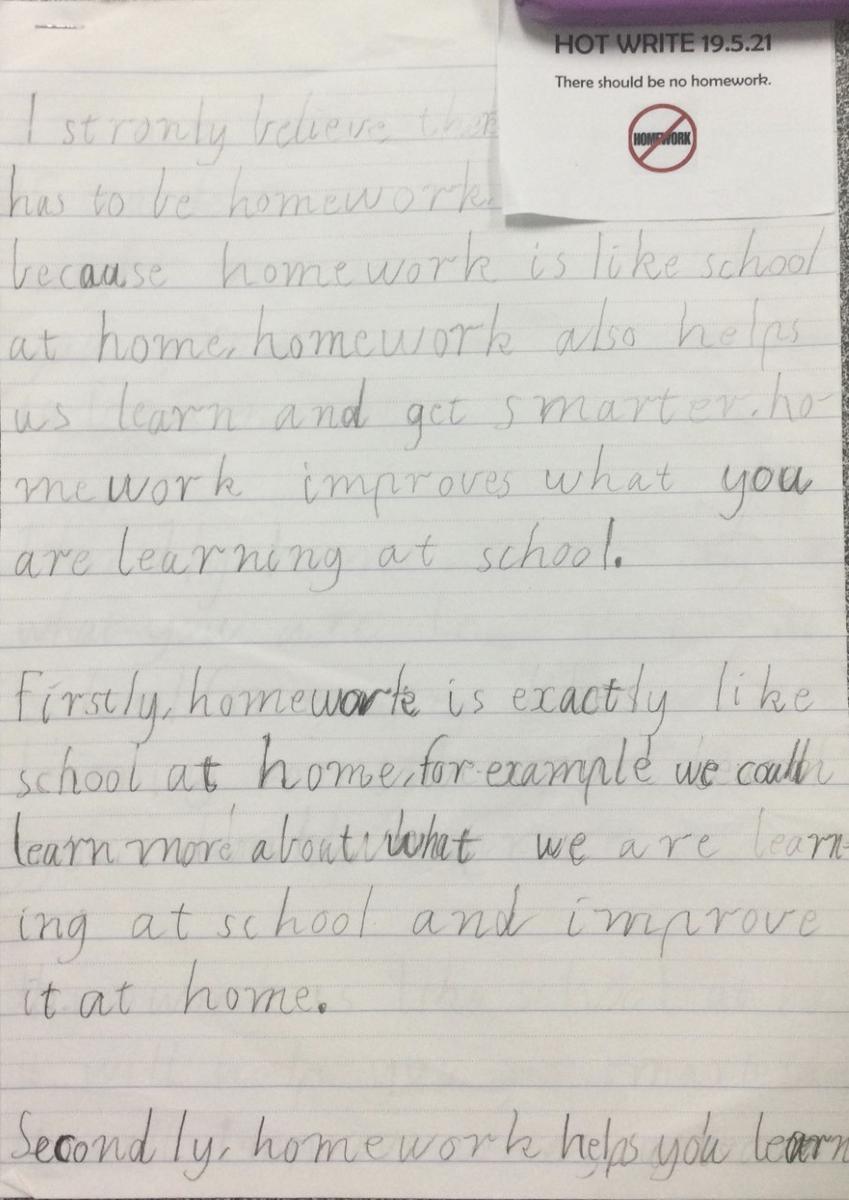 HOT WRITE 19.5.21
There should be no homework.
HOMEWORK
I stronly believe ther
has to be homework.
because homework is like school
at home, homework also helps
us learn and get smarter. ho-
mework improves what you
are learning at school.
Firstly, homework is exactly like
school at home, for example we could
learn more about what we are learn-
ing at school and improve
it at home.
Secondly, homework helps you learn